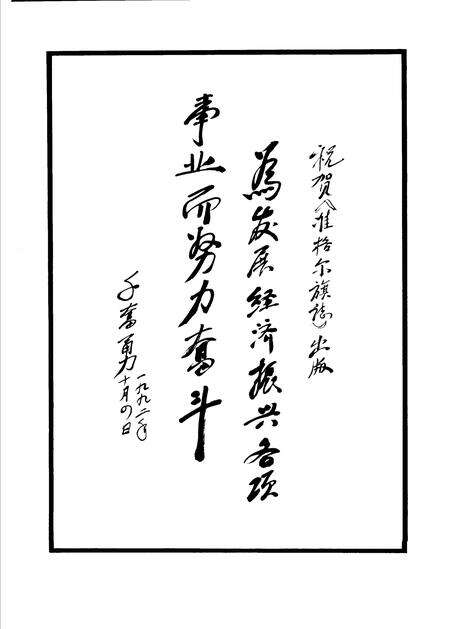 祝贺《准格尔旗誌》出版
為发展经济振兴各项
事业而努力奮斗
千奮勇
一九九二年
十月四日